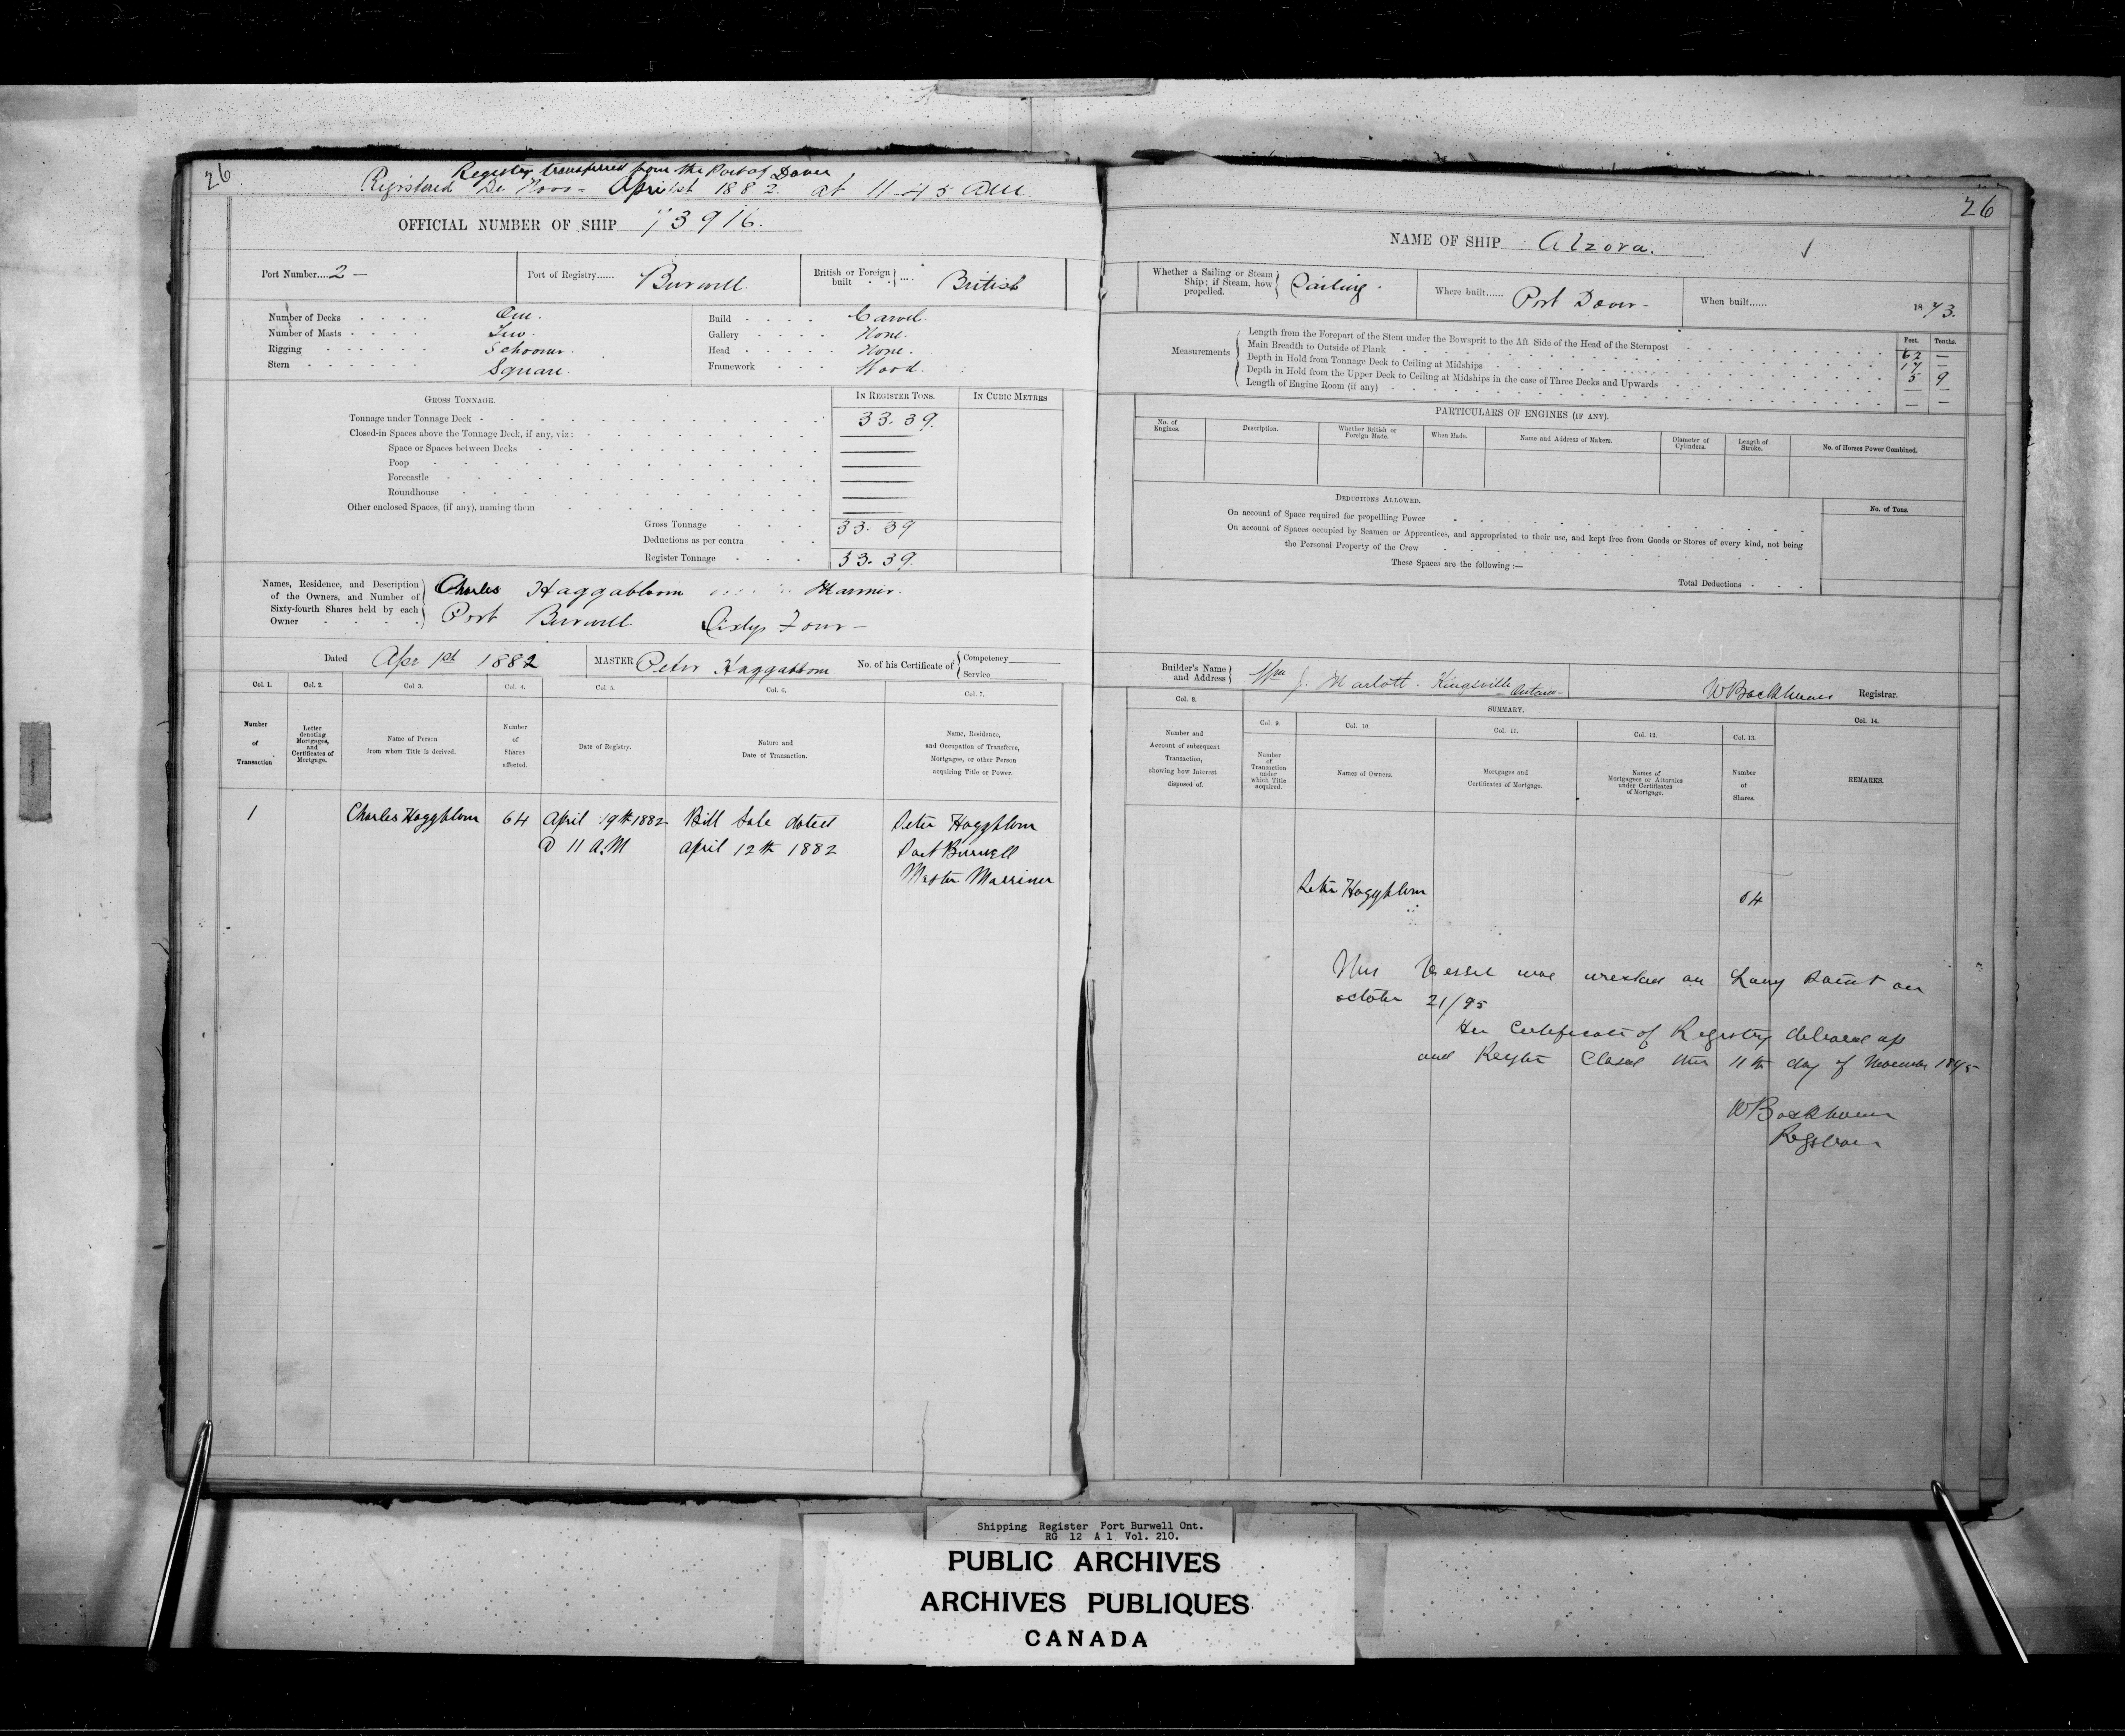 26.
Register transferred from the Port of Dover
Registered De Novo - April 1st 1882. at 11-45 AM.
OFFICIAL NUMBER OF SHIP 73916.
Port Number....2 —
Port of Registry...... Burwell.
British or Foreign built ... British
Number of Decks One.
Number of Masts Two.
Rigging Schooner.
Stern Square.
Build Carvel.
Gallery None.
Head None.
Framework Wood.
GROSS TONNAGE.
IN REGISTER TONS.
IN CUBIC METRES
Tonnage under Tonnage Deck 33.39.
Closed-in Spaces above the Tonnage Deck, if any, viz:
Space or Spaces between Decks
Poop
Forecastle
Roundhouse
Other enclosed Spaces, (if any), naming them
Gross Tonnage 33.39
Deductions as per contra
Register Tonnage 33.39.
Names, Residence, and Description
of the Owners, and Number of
Sixty-fourth Shares held by each
Owner
Charles Haggablom Marriner.
Port Burwell. Sixty Four —
Dated Apr 1st 1882
MASTER Peter Haggablom
No. of his Certificate of
Competency
Service
Col. 1.
Col. 2.
Col. 3.
Col. 4.
Col. 5.
Col. 6.
Col. 7.
Number
of
Transaction
Letter
denoting
Mortgages,
and
Certificates of
Mortgage.
Name of Person
from whom Title is derived.
Number
of
Shares
affected.
Date of Registry.
Nature and
Date of Transaction.
Name, Residence,
and Occupation of Transferee,
Mortgagee, or other Person
acquiring Title or Power.
1 Charles Haggblom 64 April 19th 1882 Bill Sale dated Peter Haggblom
@ 11 A.M April 12th 1882 Port Burwell
Master Marriner
26
NAME OF SHIP Alzora.
Whether a Sailing or Steam
Ship; if Steam, how
propelled.
Sailing.
Where built...... Port Dover -
When built...... 1873.
Measurements
Feet. Tenths.
Length from the Forepart of the Stem under the Bowsprit to the Aft Side of the Head of the Sternpost 62 —
Main Breadth to Outside of Plank 17 —
Depth in Hold from Tonnage Deck to Ceiling at Midships 5 9
Depth in Hold from the Upper Deck to Ceiling at Midships in the case of Three Decks and Upwards — —
Length of Engine Room (if any) — —
PARTICULARS OF ENGINES (IF ANY).
No. of
Engines.
Description.
Whether British or
Foreign Made.
When Made.
Name and Address of Makers.
Diameter of
Cylinders.
Length of
Stroke.
No. of Horses Power Combined.
DEDUCTIONS ALLOWED.
No. of Tons.
On account of Space required for propelling Power
On account of Spaces occupied by Seamen or Apprentices, and appropriated to their use, and kept free from Goods or Stores of every kind, not being
the Personal Property of the Crew
These Spaces are the following :—
Total Deductions
Builder's Name
and Address
Wm J. Marlott. Kingsville Ontario -
W Backhouse Registrar.
Col. 8.
SUMMARY.
Col. 9.
Col. 10.
Col. 11.
Col. 12.
Col. 13.
Col. 14.
Number and
Account of subsequent
Transaction,
showing how Interest
disposed of.
Number
of
Transaction
under
which Title
acquired.
Names of Owners.
Mortgages and
Certificates of Mortgage.
Names of
Mortgagees or Attornies
under Certificates
of Mortgage.
Number
of
Shares.
REMARKS.
Peter Haggblom 64
This Vessel was wrecked on Long Point on
october 21/95
Her Certificate of Registry delivered up
and Register Closed this 11th day of November 1895
W Backhouse
Registrar
Shipping Register Port Burwell Ont.
RG 12 A 1 Vol. 210.
PUBLIC ARCHIVES
ARCHIVES PUBLIQUES
CANADA